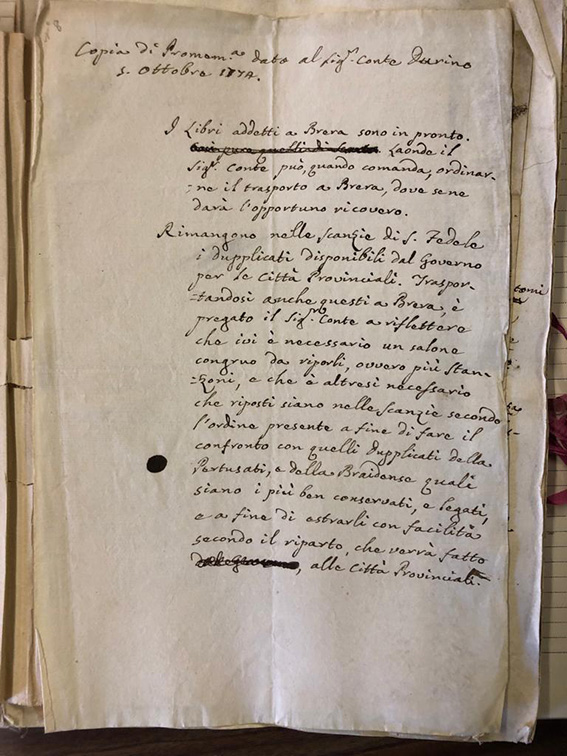 Copia di Promem.ª dato al Sig.r Conte Durino
5. Ottobre 1774.
I Libri addetti a Brera sono in pronto.
Laonde il
Sig.r Conte può, quando comanda, ordinar-
-ne il trasporto a Brera, dove se ne
darà l'opportuno ricovero.
Rimangono nelle Scanzie di S. Fedele
i dupplicati disponibili dal Governo
per le Città Provinciali. Traspor-
-tandosi anche questi a Brera, è
pregato il Sig.r Conte a riflettere
che ivi è necessario un salone
congruo da riporli, ovvero più Stan-
-zoni, e che è altresì necessario
che riposti siano nelle Scanzie secondo
l'ordine presente a fine di fare il
confronto con quelli Dupplicati della
Pertusati, e della Braidense quali
siano i più ben conservati, e legati,
e a fine di estrarli con facilità
secondo il riparto, che verrà fatto
, alle Città Provinciali.